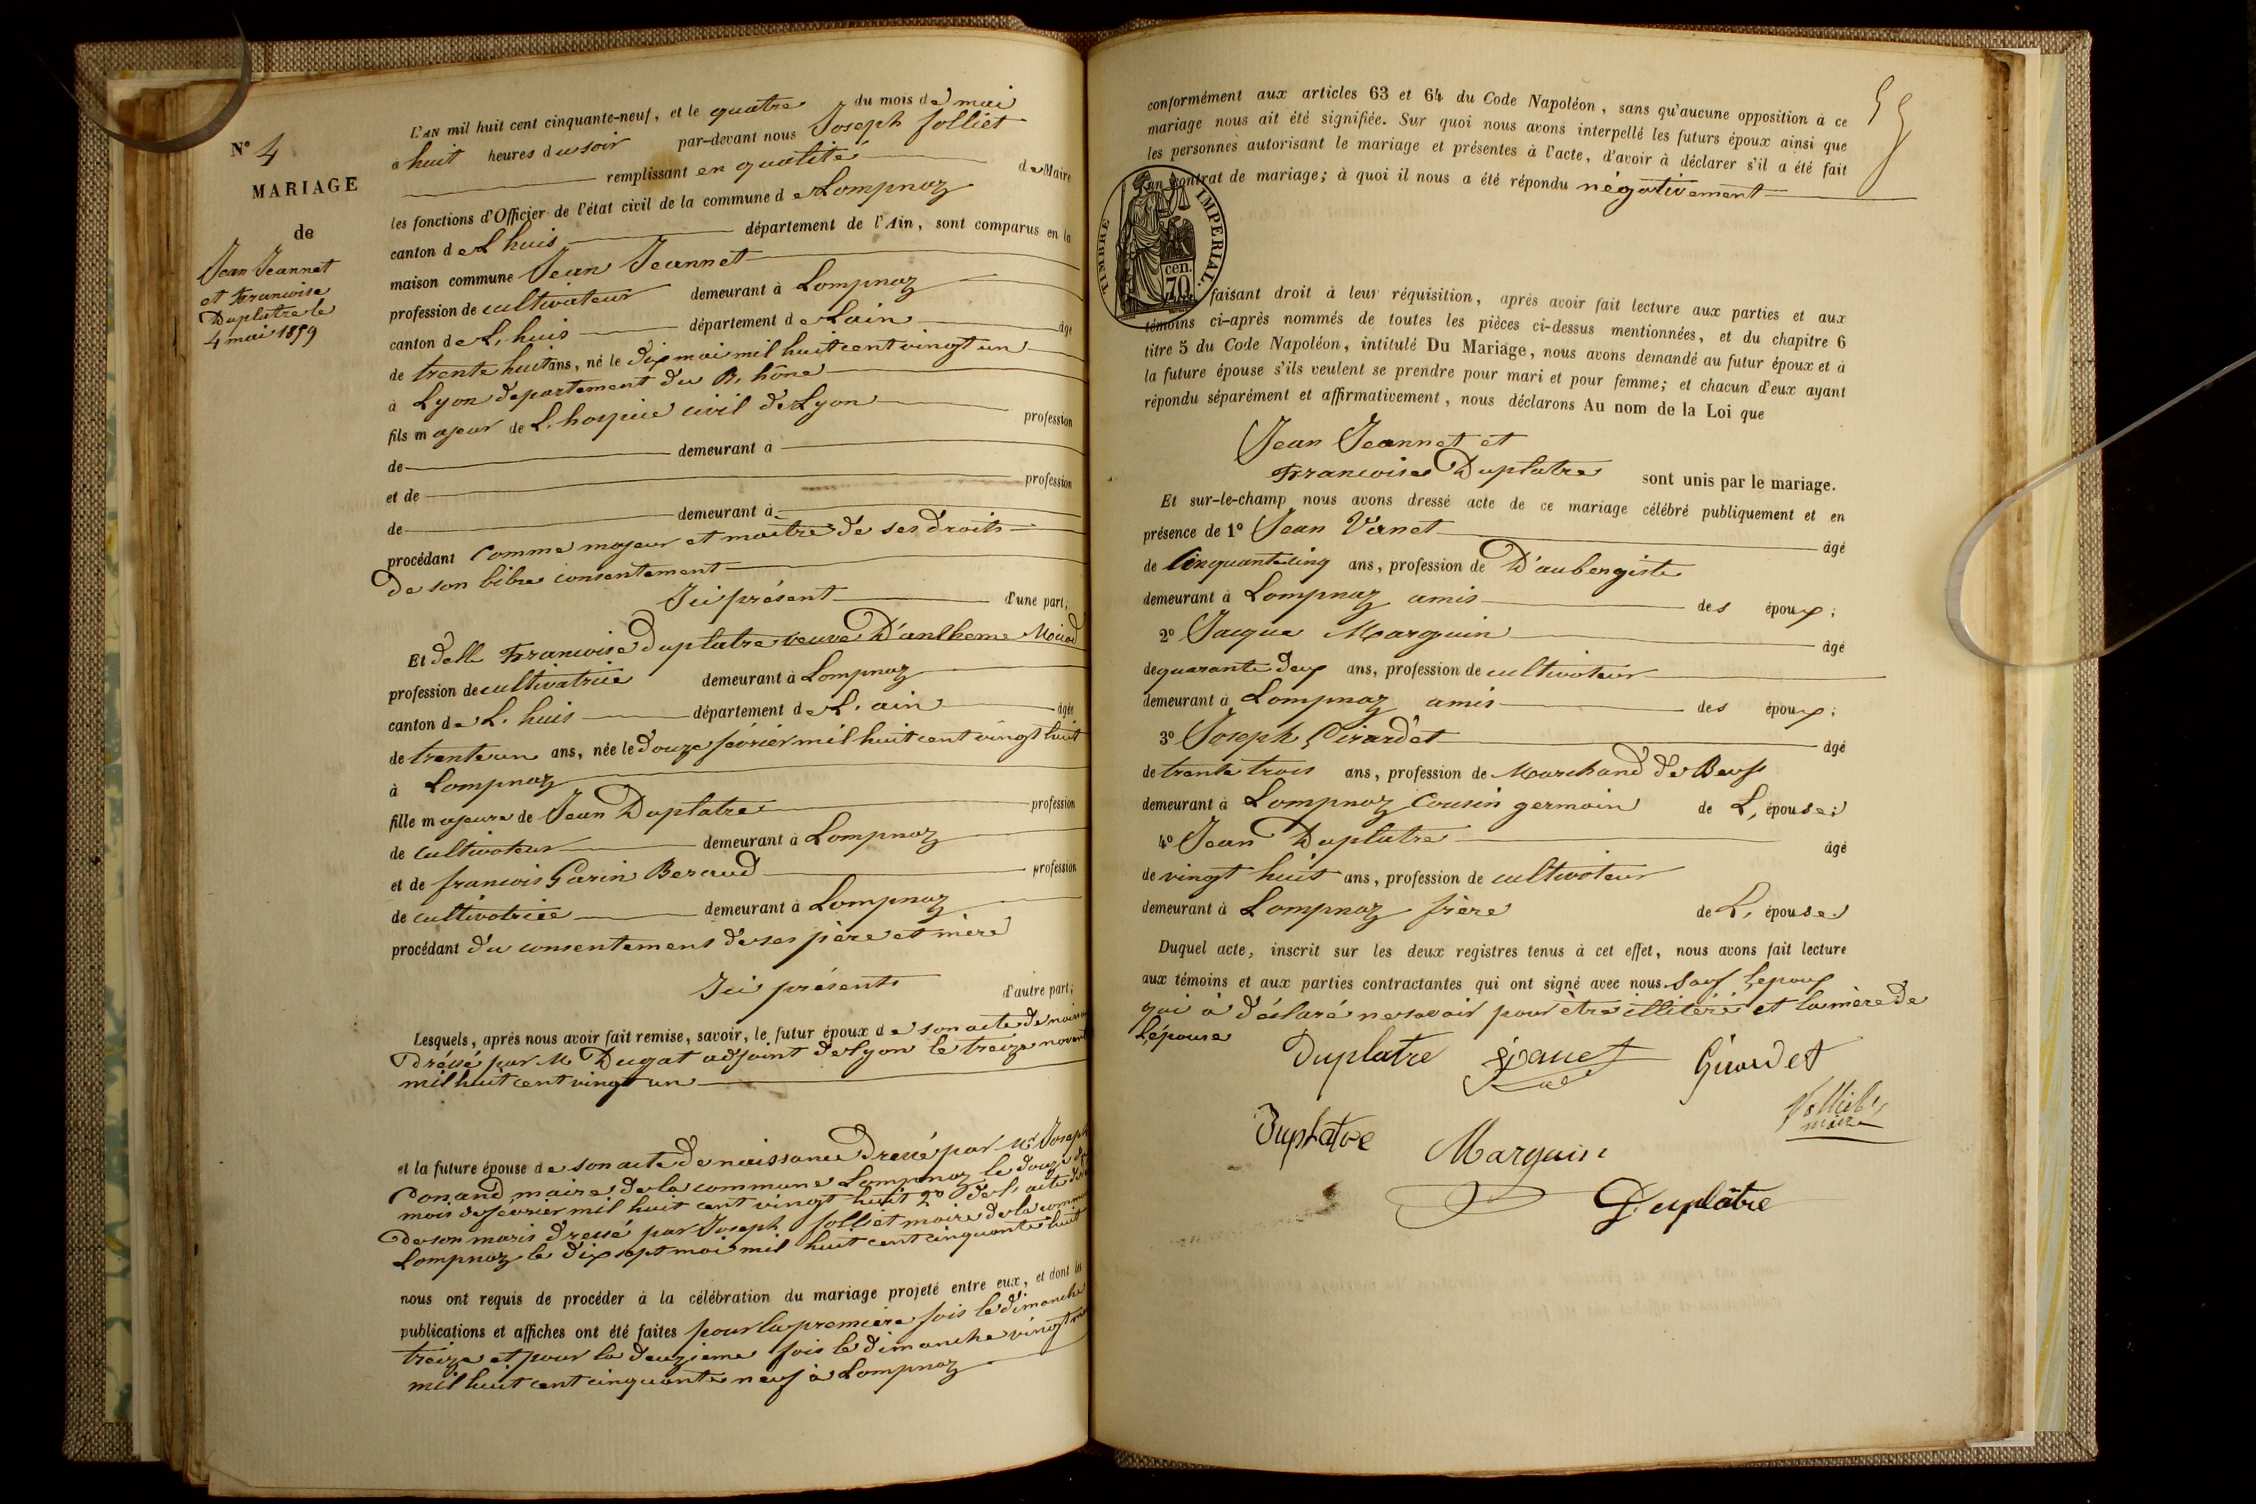 N° 4
MARIAGE
de
Jean Jeannet
et Francoise
Duplatre le
4 mai 1859
L'AN mil huit cent cinquante-neuf, et le quatre du mois de mai
à huit heures du soir par-devant nous Joseph Jolliet
remplissant en qualité de Maire
les fonctions d'Officier de l'état civil de la commune de Lompnaz
canton de Lhuis département de l'Ain, sont comparus en la
maison commune Jean Jeannet
profession de cultivateur demeurant à Lompnaz
canton de L, huis département de Lain âgé
de trente huit ans, né le dix mai mil huit cent vingt un
à Lyon departement du R, hône
fils majeur de L, hospice civil de Lyon profession
de demeurant à
et de profession
de demeurant à
procédant Comme majeur et maitre de ses droits
de son libre consentement
Ici présent d'une part;
Et delle Francoise Duplatre veuve D'antheme
profession de cultivatrice demeurant à Lompnaz
canton de L, huis département de L, ain âgée
de trente un ans, née le douze février mil huit cent vingt huit
à Lompnaz
fille majeure de Jean Duplatre profession
de cultivateur demeurant à Lompnaz
et de francois Garin Beraud profession
de cultivatrice demeurant à Lompnaz
procédant du consentement de ses père et mère
Ici présents d'autre part;
Lesquels, après nous avoir fait remise, savoir, le futur époux de son acte de
Dréssé par M Dugat adjoint de Lyon le treize
mil huit cent vingt un
et la future épouse de son acte de naissance Dressé par Mr Joseph
Conand maire de la commune Lompnaz le douze
mois de février mil huit cent vingt huit 2° de l, acte
de son maris dressé par Joseph Jolliet maire de la
Lompnaz le dix sept mai mil huit cent cinquante huit
nous ont requis de procéder à la célébration du mariage projeté entre eux, et dont les
publications et affiches ont été faites pour la premiere fois le dimanche
treize et pour la deuzieme fois le dimanche vingt
mil huit cent cinquante neuf à Lompnaz
conformément aux articles 63 et 64 du Code Napoléon, sans qu'aucune opposition à ce
mariage nous ait été signifiée. Sur quoi nous avons interpellé les futurs époux ainsi que
les personnes autorisant le mariage et présentes à l'acte, d'avoir à déclarer s'il a été fait
un contrat de mariage; à quoi il nous a été répondu négativement
TIMBRE IMPERIAL.
70 cen.
faisant droit à leur réquisition, après avoir fait lecture aux parties et aux
témoins ci-après nommés de toutes les pièces ci-dessus mentionnées, et du chapitre 6
titre 5 du Code Napoléon, intitulé Du Mariage, nous avons demandé au futur époux et à
la future épouse s'ils veulent se prendre pour mari et pour femme; et chacun d'eux ayant
répondu séparément et affirmativement, nous déclarons Au nom de la Loi que
Jean Jeannet et
Francoise Duplatre sont unis par le mariage.
Et sur-le-champ nous avons dressé acte de ce mariage célébré publiquement et en
présence de 1° Jean Vanet âgé
de Cinquante cinq ans, profession de D'aubergiste
demeurant à Lompnaz amis des époux;
2° Jacque Marguin âgé
de quarante deux ans, profession de cultivateur
demeurant à Lompnaz amis des époux;
3° Joseph Girardet âgé
de trente trois ans, profession de Marchand de Beufs
demeurant à Lompnaz Cousin germain de L, épouse;
4° Jean Duplatre âgé
de vingt huit ans, profession de cultivateur
demeurant à Lompnaz frère de L, épouse
Duquel acte, inscrit sur les deux registres tenus à cet effet, nous avons fait lecture
aux témoins et aux parties contractantes qui ont signé avec nous sauf Lepoux
qui à déclaré ne savoir pour être illitéré et la mère de
L'épouse
Duplatre Vanet Girardet
Jolliet
maire
Duplatre Marguin
Duplâtre